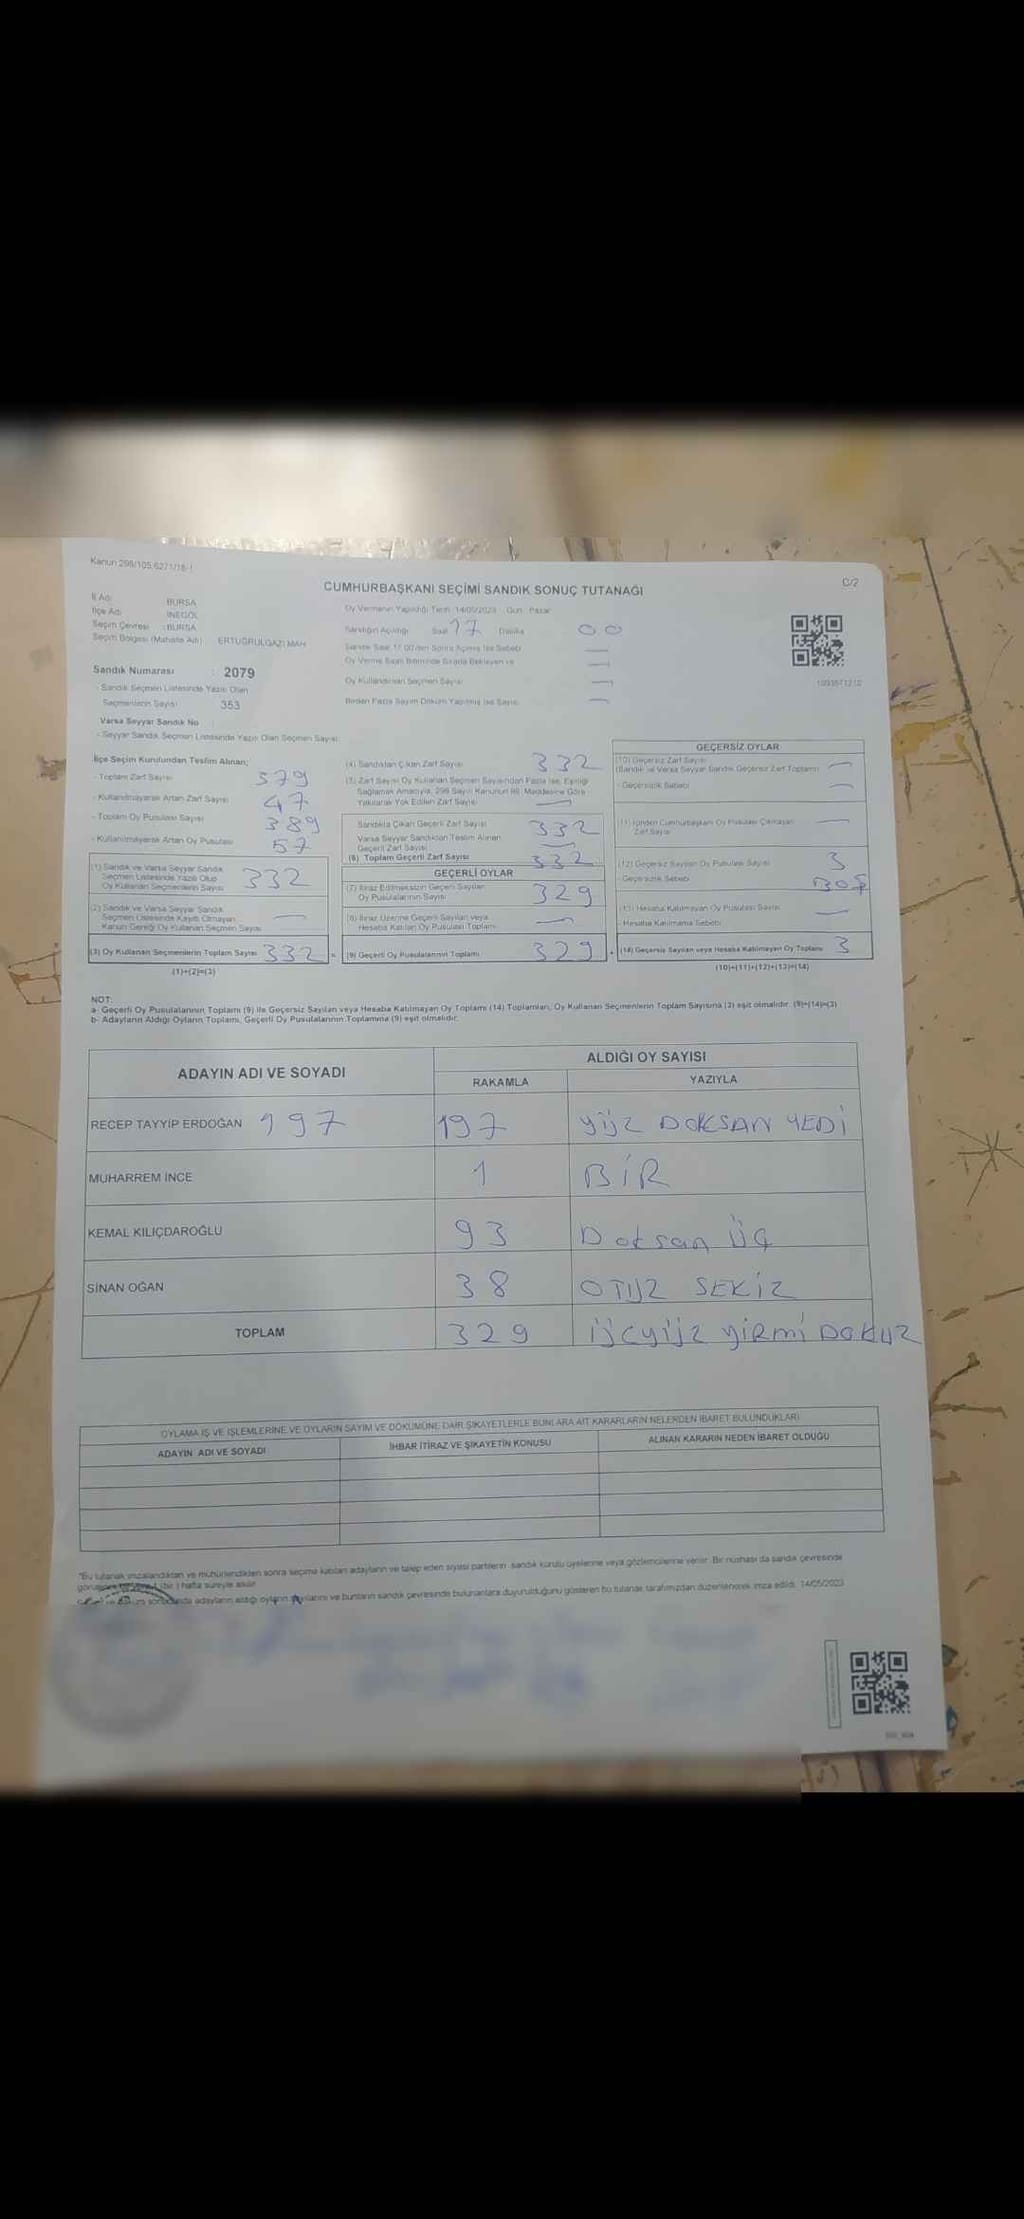 Kanun 298/105,6271/18-1
CUMHURBAŞKANI SEÇİMİ SANDIK SONUÇ TUTANAĞI
C/2
İl Adı: BURSA
İlçe Adı: İNEGÖL
Seçim Çevresi : BURSA
Seçim Bölgesi (Mahalle Adı) ERTUĞRULGAZİ MAH
Sandık Numarası : 2079
- Sandık Seçmen Listesinde Yazılı Olan
Seçmenlerin Sayısı 353
Varsa Seyyar Sandık No
- Seyyar Sandık Seçmen Listesinde Yazılı Olan Seçmen Sayısı
Oy Vermenin Yapıldığı Tarih: 14/05/2023 Gün: Pazar
Sandığın Açıldığı Saat 17 Dakika 00
Sandık Saat 17.00'den Sonra Açılmış İse Sebebi —
Oy Verme Saati Bitiminde Sırada Bekleyen ve —
Oy Kullandırılan Seçmen Sayısı —
Birden Fazla Sayım Döküm Yapılmış İse Sayısı —
İlçe Seçim Kurulundan Teslim Alınan;
- Toplam Zarf Sayısı 379
- Kullanılmayarak Artan Zarf Sayısı 47
- Toplam Oy Pusulası Sayısı 389
- Kullanılmayarak Artan Oy Pusulası 57
(1) Sandık ve Varsa Seyyar Sandık
Seçmen Listesinde Yazılı Olup
Oy Kullanan Seçmenlerin Sayısı 332
(2) Sandık ve Varsa Seyyar Sandık
Seçmen Listesinde Kayıtlı Olmayan
Kanun Gereği Oy Kullanan Seçmen Sayısı —
(3) Oy Kullanan Seçmenlerin Toplam Sayısı 332 =
(1)+(2)=(3)
(4) Sandıktan Çıkan Zarf Sayısı 332
(5) Zarf Sayısı Oy Kullanan Seçmen Sayısından Fazla İse, Eşitliği
Sağlamak Amacıyla, 298 Sayılı Kanunun 98. Maddesine Göre
Yakılarak Yok Edilen Zarf Sayısı —
Sandıkta Çıkan Geçerli Zarf Sayısı 332
Varsa Seyyar Sandıktan Teslim Alınan
Geçerli Zarf Sayısı —
(6) Toplam Geçerli Zarf Sayısı 332
GEÇERLİ OYLAR
(7) İtiraz Edilmeksizin Geçerli Sayılan
Oy Pusulalarının Sayısı 329
(8) İtiraz Üzerine Geçerli Sayılan veya
Hesaba Katılan Oy Pusulası Toplamı —
(9) Geçerli Oy Pusulalarının Toplamı 329 +
GEÇERSİZ OYLAR
(10) Geçersiz Zarf Sayısı
(Sandık ve Varsa Seyyar Sandık Geçersiz Zarf Toplamı) —
- Geçersizlik Sebebi —
(11) İçinden Cumhurbaşkanı Oy Pusulası Çıkmayan
Zarf Sayısı —
(12) Geçersiz Sayılan Oy Pusulası Sayısı 3
- Geçersizlik Sebebi BOŞ
(13) Hesaba Katılmayan Oy Pusulası Sayısı —
- Hesaba Katılmama Sebebi
(14) Geçersiz Sayılan veya Hesaba Katılmayan Oy Toplamı 3
(10)+(11)+(12)+(13)=(14)
NOT:
a- Geçerli Oy Pusulalarının Toplamı (9) ile Geçersiz Sayılan veya Hesaba Katılmayan Oy Toplamı (14) Toplamları, Oy Kullanan Seçmenlerin Toplam Sayısına (3) eşit olmalıdır. (9)+(14)=(3)
b- Adayların Aldığı Oyların Toplamı, Geçerli Oy Pusulalarının Toplamına (9) eşit olmalıdır.
ADAYIN ADI VE SOYADI
ALDIĞI OY SAYISI
RAKAMLA YAZIYLA
RECEP TAYYİP ERDOĞAN 197 197 YÜZ DOKSAN YEDİ
MUHARREM İNCE 1 BİR
KEMAL KILIÇDAROĞLU 93 Doksan ÜÇ
SİNAN OĞAN 38 OTUZ SEKİZ
TOPLAM 329 ÜÇYÜZ YİRMİ DOKUZ
OYLAMA İŞ VE İŞLEMLERİNE VE OYLARIN SAYIM VE DÖKÜMÜNE DAİR ŞİKAYETLERLE BUNLARA AİT KARARLARIN NELERDEN İBARET BULUNDUKLARI
ADAYIN ADI VE SOYADI İHBAR İTİRAZ VE ŞİKAYETİN KONUSU ALINAN KARARIN NEDEN İBARET OLDUĞU
"Bu tutanak imzalandıktan ve mühürlendikten sonra seçime katılan adayların ve talep eden siyasi partilerin sandık kurulu üyelerine veya gözlemcilerine verilir. Bir nüshası da sandık çevresinde
1 (bir) hafta süreyle asılır.
adayların aldığı oyların sayılarını ve bunların sandık çevresinde bulunanlara duyurulduğunu gösteren bu tutanak tarafımızdan düzenlenerek imza edildi. 14/05/2023